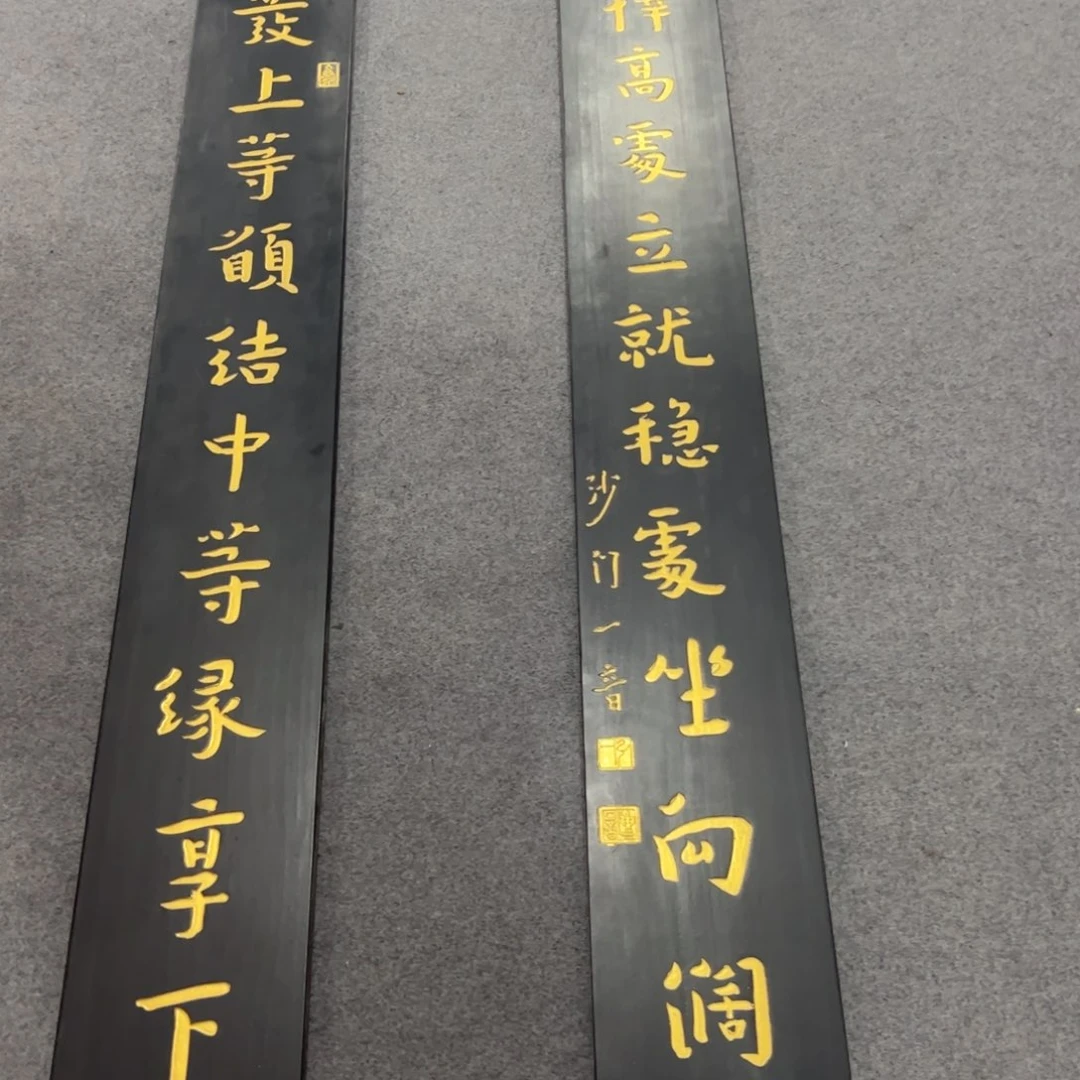 發上等願结中等缘享下
擇高處立就稳處坐向阔
沙门一音